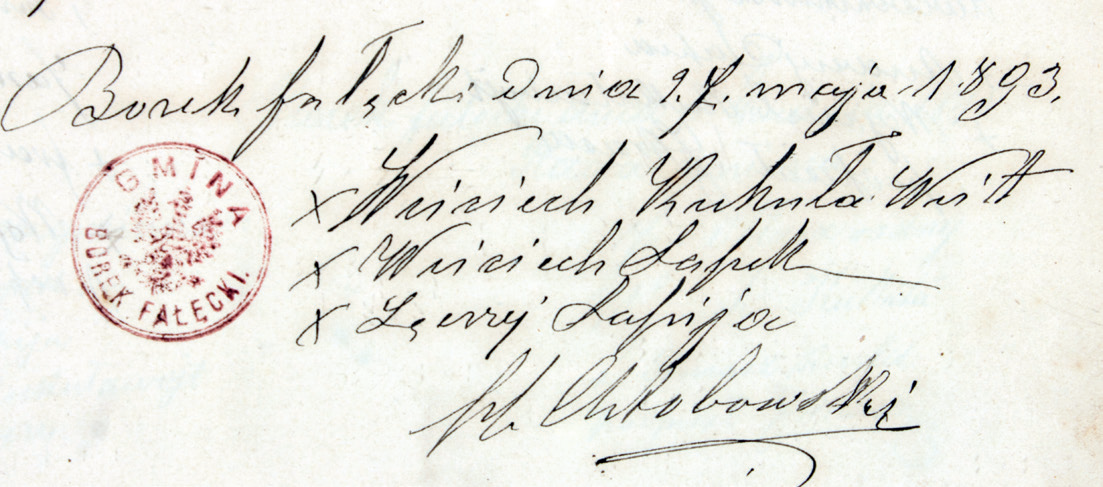 Borek fałęcki dnia 27. maja 1893.
GMINA
BOREK FAŁĘCKI.
x Wojciech Kukuła Wójt
x Wojciech Łapek
x Łapija